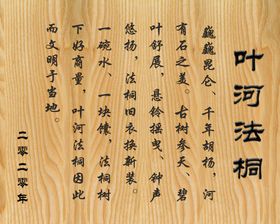 叶河法桐
巍巍昆仑、千年胡杨，河
有石之美。古树参天、碧
叶舒展，悬铃摇曳、钟声
悠扬，法桐旧衣换新装。
一碗水、一块馕，法桐树
下好商量，叶河法桐因此
而文明于当地。
二零二零年